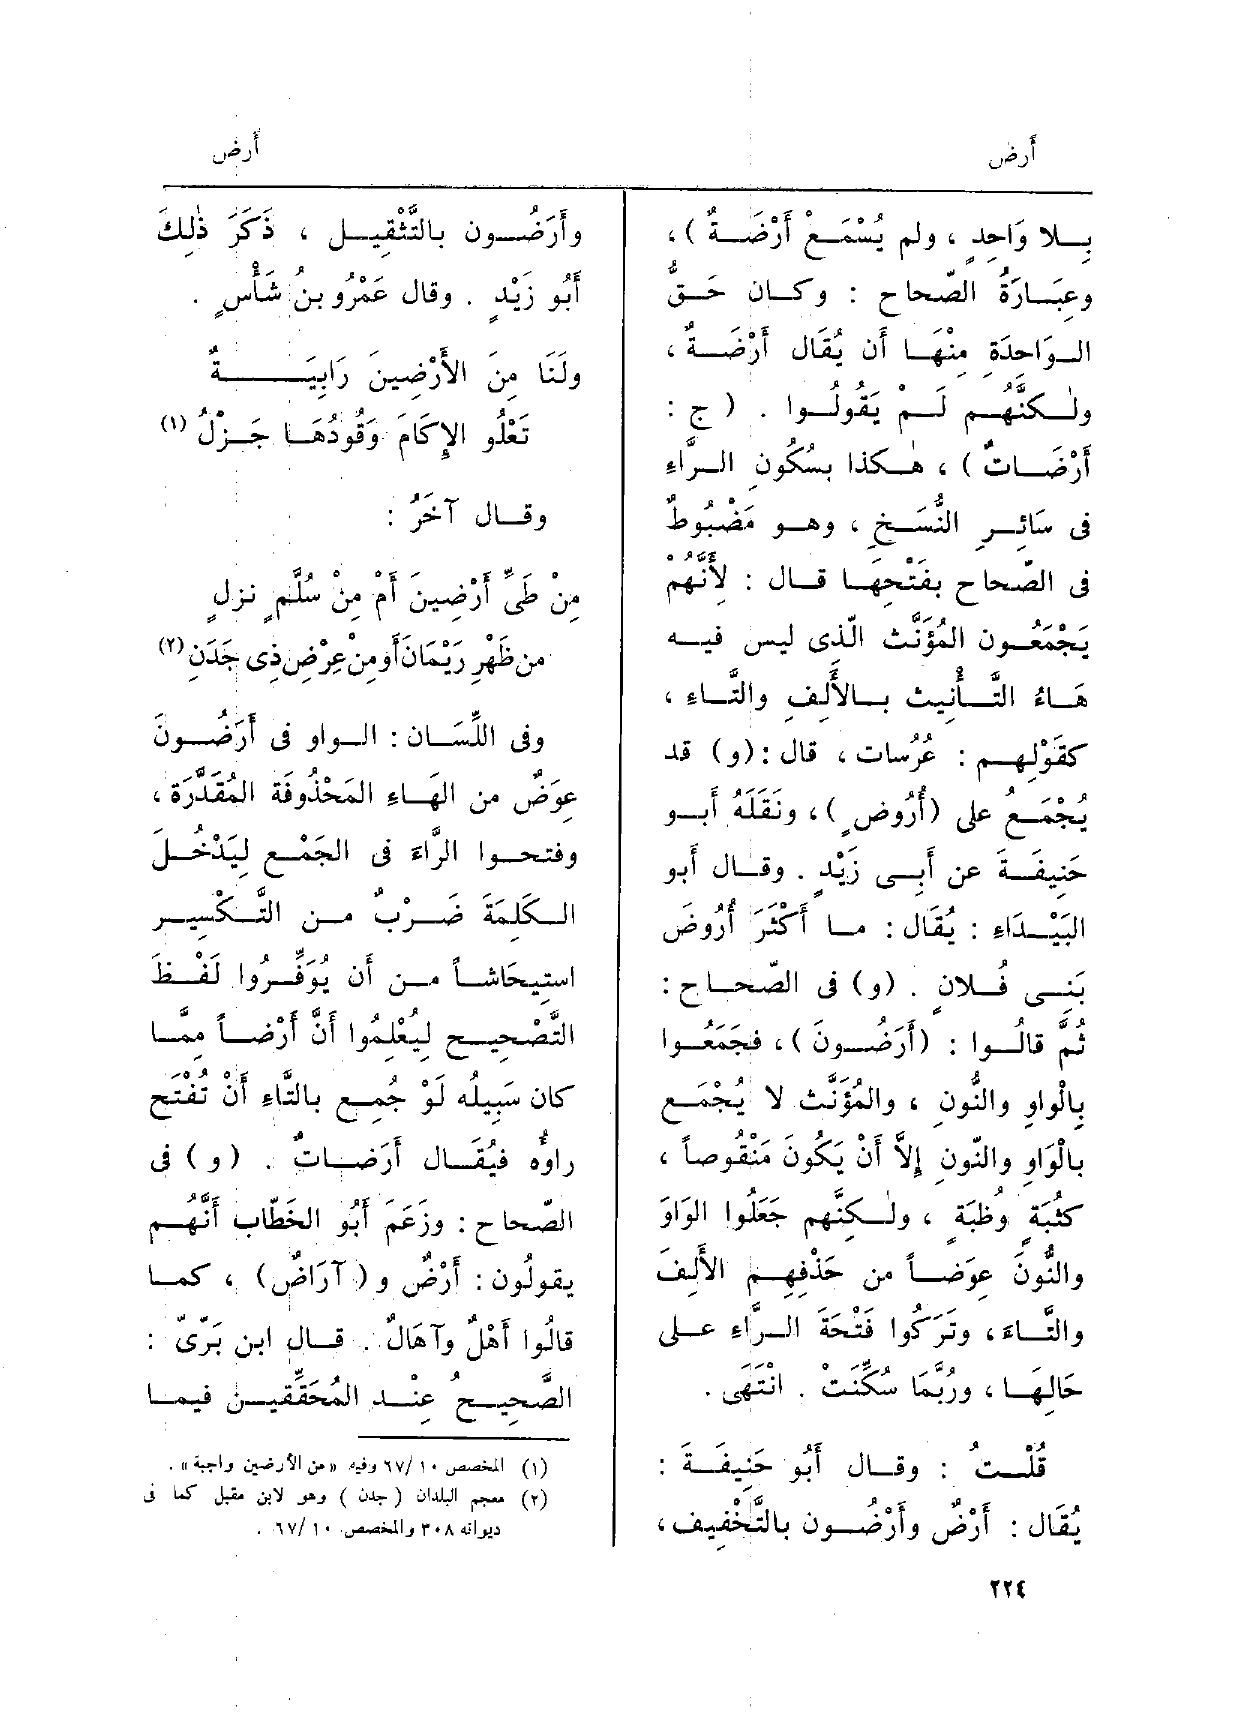 أرض
أرض
بـلا وَاحِدٍ ، ولم يُسْمَـعْ أَرْضَـةٌ ) ،
وعِبَـارَةُ الصّحاح : وكـان حَـقُّ
الـوَاحِدَةِ مِنْهَـا أَن يُقَال أَرْضَـةٌ ،
ولٰـكنَّهُـم لَـمْ يَقُولُـوا . ( ج :
أَرْضَـاتٌ ) ، هٰـكذا بسُكُونِ الـرَّاءِ
فى سَائِـرِ النُّسَـخِ ، وهـو مَضْبُوطٌ
فى الصّحاح بفَتْحِهَـا قـال : لأَنَّهُمْ
يَجْمَعُـون المُؤَنَّـث الَّذى ليس فيـه
هَـاءُ التَّـأْنيثِ بـالأَلِفِ والتَّـاءِ ،
كقَوْلِهِـم : عُرُسات ، قال : (و) قد
يُجْمَـعُ على (أُرُوضٍ ) ، ونَقَلَهُ أَبـو
حَنِيفَـةَ عن أَبـى زَيْدٍ . وقـال أَبو
البَيْـدَاءِ : يُقَال : مـا أَكْثَرَ أُرُوضَ
بَنـى فُـلانٍ . (و) فى الصّحـاح :
ثُمَّ قالُـوا : (أَرَضُـونَ ) ، فجَمَعُـوا
بالْواوِ والنُّون ، والمُؤَنَّـث لا يُجْمَـع
بالْوَاوِ والنّونِ إِلاَّ أَنْ يَكُونَ مَنْقُوصاً ،
كثُبَةٍ وظُبَةٍ ، ولٰـكنَّهم جَعَلُوا الوَاوَ
والنُّونَ عِوَضـاً من حَذْفِهِـم الأَلِفَ
والتَّـاءَ ، وتَرَكُوا فَتْحَةَ الـرَّاءِ عـلى
حَالِهَـا ، ورُبَّمَا سُكِّنَتْ . انْتَهَى .
قُلْـتُ : وقـال أَبُو حَنِيفَـةَ :
يُقَال : أَرْضٌ وأَرْضُـون بالتَّخْفِيف ،
وأَرَضُـون بالتَّثْقِيـل ، ذَكَرَ ذٰلِكَ
أَبُو زَيْدٍ . وقال عَمْرُو بنُ شَأْسٍ .
ولَنَا مِنَ الأَرْضِينَ رَابِيَــــةٌ
تَعْلُو الإِكَامَ وَقُودُهَـا جَـزْلُ (١)
وقـال آخَرُ :
مِنْ طَىِّ أَرْضِينَ أَمْ مِنْ سُلَّمٍ نزلٍ
من ظَهْرِ رَيْمَانَ أَو مِن عِرْضِ ذِى جَدَنِ (٢)
وفى اللِّسَـان : الـواو فى أَرَضُـونَ
عِوَضٌ من الهَـاءِ المَحْذُوفَة المُقَدَّرَة ،
وفتحـوا الرَّاءَ فى الجَمْـع لِيَدْخُـلَ
الـكَلِمَةَ ضَـرْبٌ مـن التَّـكْسِيـر
استِيحَاشـاً مـن أَن يُوَفِّـرُوا لَفْـظَ
التَّصْحِيـحِ لِيُعْلِمُوا أَنَّ أَرْضـاً ممَّـا
كان سَبِيلُه لَوْ جُمِـع بالتَّاءِ أَنْ تُفْتَح
راوُه فيُقَـال أَرَضـاتٌ . ( و ) فى
الصّحاح : وزَعَمَ أَبُو الخَطَّاب أَنَّهُـم
يقولُون : أَرْضٌ و ( آرَاضٌ ) ، كمـا
قالُوا أَهْلٌ وآهَالٌ . قـال ابن بَرّىّ :
الصَّحِيـحُ عِنْـد المُحَقِّقِيـن فيمـا
(١) المخصص ١٠ /٦٧ وفيه «من الأرضين واجبة» .
(٢) معجم البلدان ( جدن ) وهو لابن مقبل كما فى
ديوانه ٣٠٨ والمخصص ١٠ /٦٧ .
٢٢٤